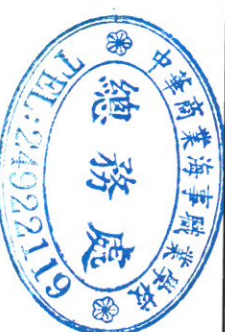 中華商業海事職業學校
總務處
TEL:24922119